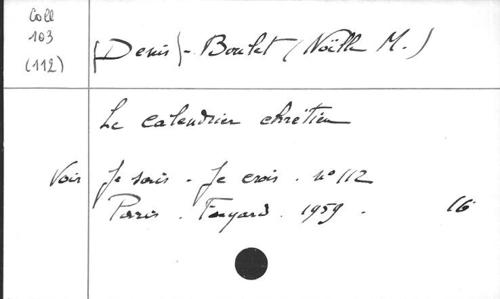 Coll
103
(112)
(Denis)-Boulet (Noëlle M.)
Le calendrier chrétien
Voir Je sais - Je crois . n° 112
Paris . Fayard . 1959 . 16